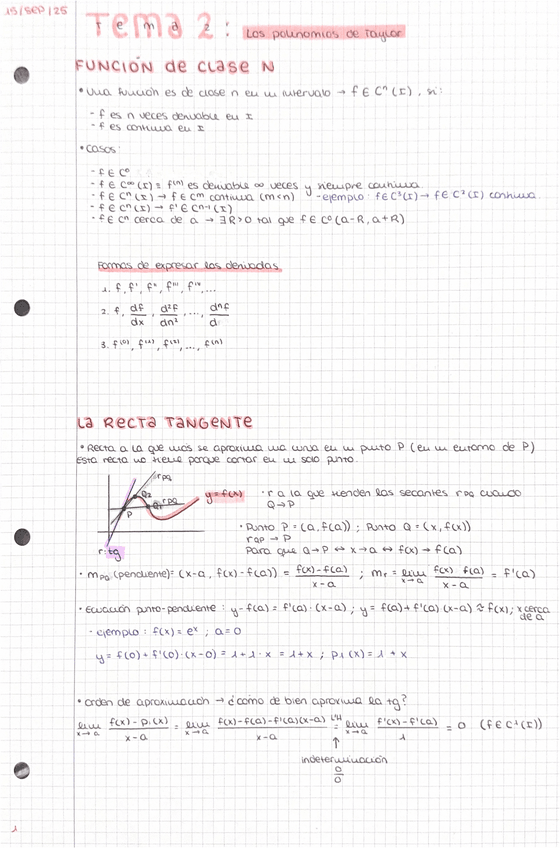 15/SEP/25
Tema 2: Los polinomios de Taylor
FUNCIÓN de CLASE N
• Una función es de clase n en un intervalo → f ∈ Cⁿ(I), si:
- f es n veces derivable en I
- f es continua en I
• Casos:
- f ∈ C⁰
- f ∈ C^∞(I) = f⁽ⁿ⁾ es derivable ∞ veces y siempre continua
- f ∈ Cⁿ(I) → f ∈ Cᵐ continua (m<n) - ejemplo: f∈C³(I) → f∈C²(I) continua
- f ∈ Cⁿ(I) → f' ∈ Cⁿ⁻¹(I)
- f ∈ Cⁿ cerca de a → ∃R>0 tal que f ∈ C⁰(a-R, a+R)
Formas de expresar las derivadas
1. f, f', f'', f''', f'ᵛ, ...
2. f, df/dx, d²f/dn², ..., dⁿf/d
3. f⁽⁰⁾, f⁽¹⁾, f⁽²⁾, ..., f⁽ⁿ⁾
LA RECTA TANGENTE
• Recta a la que más se aproxima una curva en un punto P (en un entorno de P)
Esta recta no tiene porque cortar en un solo punto.
r_PQ
Q₂
r_PQ
Q₁
P
y=f(x)
r: tg
· r a la que tienden las secantes r_PQ cuando
Q→P
· Punto P = (a, f(a)); Punto Q = (x, f(x))
r_QP → P
Para que Q→P ↔ x→a ↔ f(x) → f(a)
· m_PQ (pendiente) = (x-a, f(x)-f(a)) = f(x)-f(a)/x-a ; m_r = lim x→a f(x) f(a)/x-a = f'(a)
• Ecuación punto-pendiente: y-f(a) = f'(a)·(x-a); y = f(a)+f'(a)(x-a) ≈ f(x); x cerca
de a
- ejemplo: f(x) = eˣ ; a=0
y = f(0) + f'(0)·(x-0) = 1+1·x = 1+x ; p₁(x) = 1+x
• Orden de aproximación → ¿cómo de bien aproxima la tg?
lim x→a f(x)-p₁(x)/x-a = lim x→a f(x)-f(a)-f'(a)(x-a)/x-a L'H = lim x→a f'(x)-f'(a)/1 = 0 (f∈C¹(I))
↑
indeterminación
0/0
1